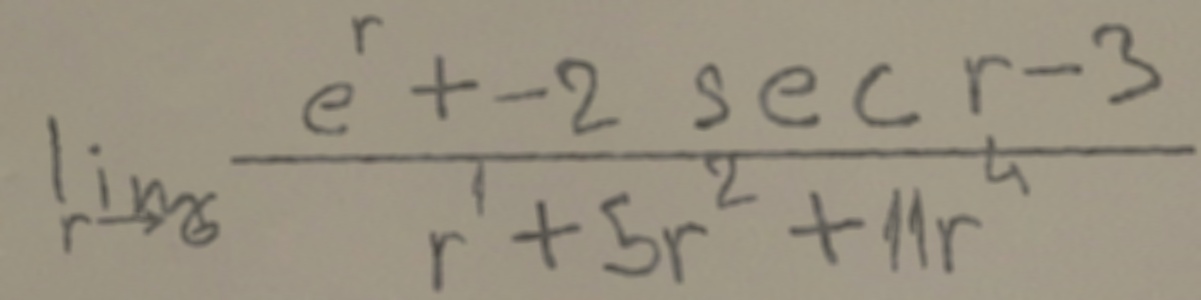 \lim_{r \to 8} \frac{e^{r} + -2 \sec r - 3}{r^{1} + 5r^{2} + 11r^{4}}